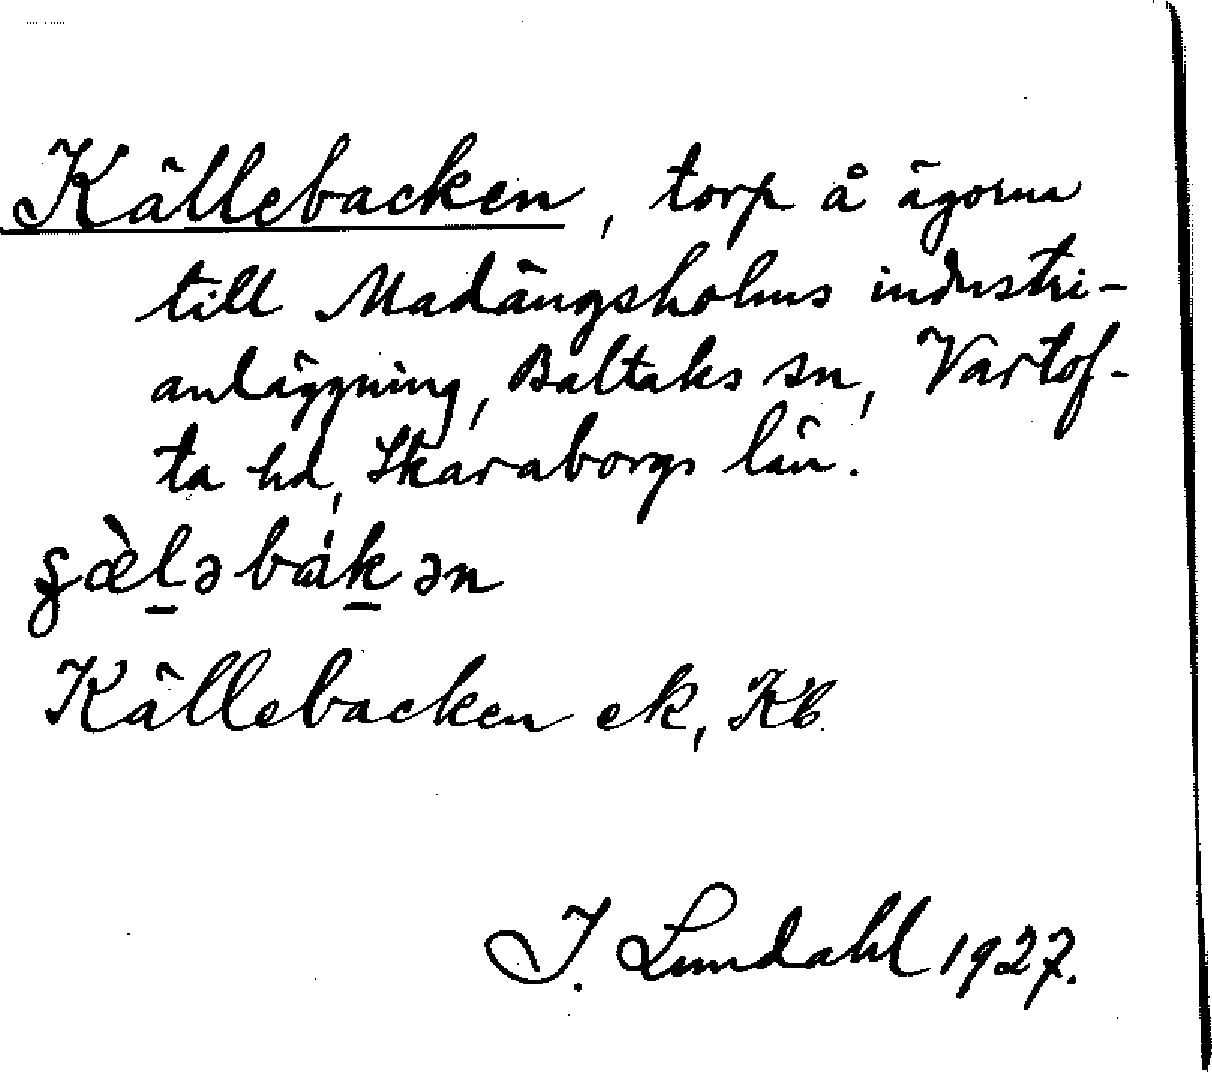 Källebacken, torp å ägorna
till Madängsholms industri-
anläggning, Baltaks sn, Vartof-
ta hd, Skaraborgs län.
Källebacken ek, Kb.
I. Lundahl 1927.